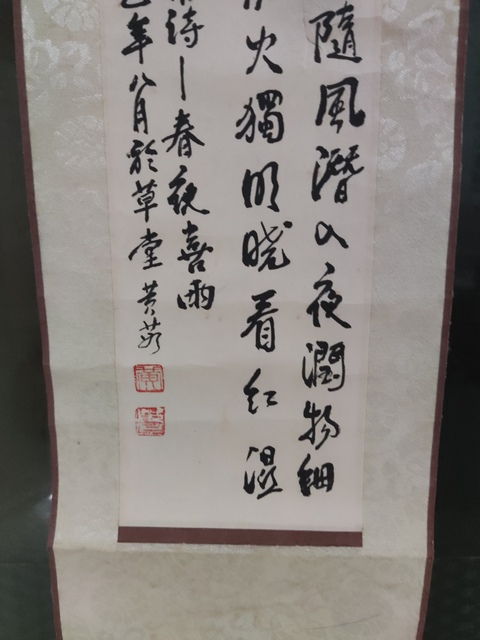 隨風潛入夜潤物细
火獨明晓看红濕
诗一春夜喜雨
年八月於草堂黄